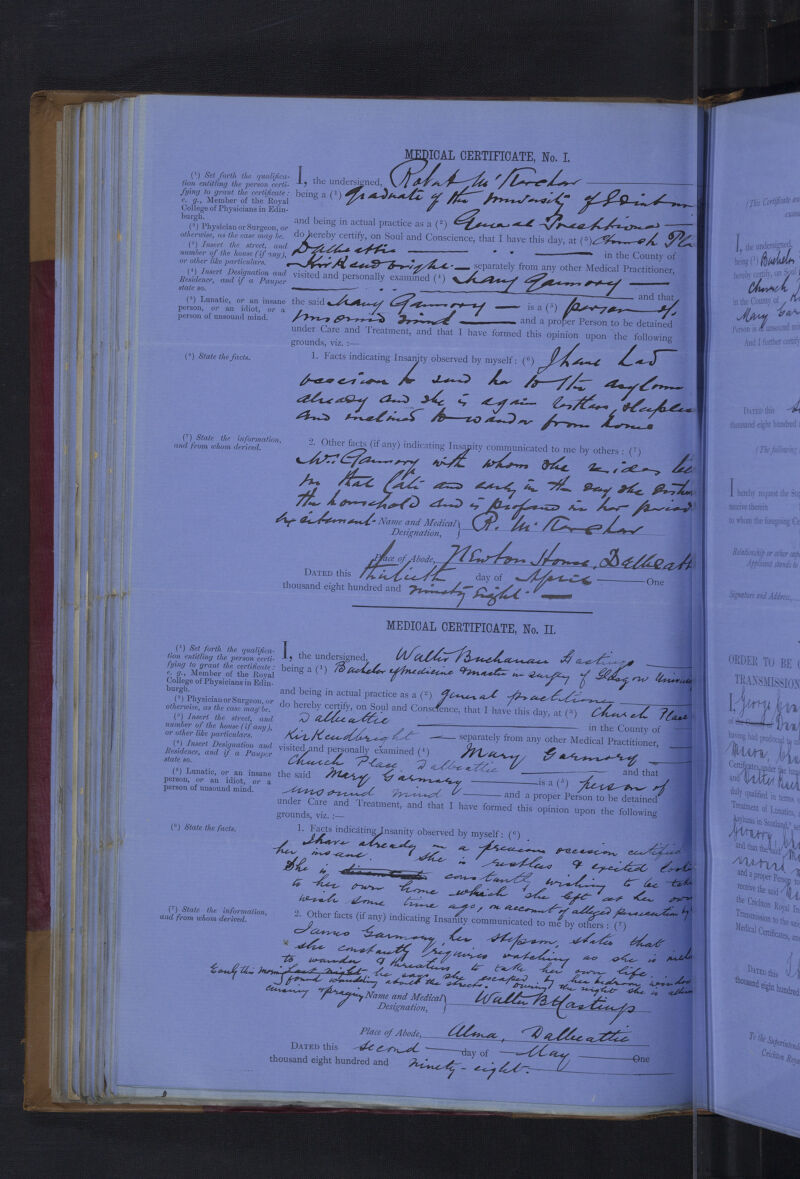 MEDICAL CERTIFICATE, No. I.
(¹) Set forth the qualifica-
tion entitling the person certi-
fying to grant the certificate:
e. g., Member of the Royal
College of Physicians in Edin-
burgh.
(²) Physician or Surgeon, or
otherwise, as the case may be.
(³) Insert the street, and
number of the house (if any),
or other like particulars.
(⁴) Insert Designation and
Residence, and if a Pauper
state so.
(⁵) Lunatic, or an insane
person, or an idiot, or a
person of unsound mind.
(⁶) State the facts.
(⁷) State the information,
and from whom derived.
I, the undersigned, Robert McKerchar
being a (¹) graduate of the University of Edin
and being in actual practice as a (²) General Practitioner
do hereby certify, on Soul and Conscience, that I have this day, at (³) Church Pl
Dalbeattie in the County of
Kirkcudbright separately from any other Medical Practitioner,
visited and personally examined (⁴) Mary Garmory
and that
the said Mary Garmory is a (⁵) person of
unsound mind and a proper Person to be detained
under Care and Treatment, and that I have formed this opinion upon the following
grounds, viz. :—
1. Facts indicating Insanity observed by myself: (⁶) I have had
occasion to send her to the asylum
already and she is again restless, sleepless
and inclined to wander from home
2. Other facts (if any) indicating Insanity communicated to me by others: (⁷)
Mr. Garmory with whom she resides
that late and early in the day she
the household and is profane in her
excitement. Name and Medical
Designation, R. McKerchar
Place of Abode, Newton House, Dalbeatt
DATED this thirtieth day of April One
thousand eight hundred and ninety eight.
MEDICAL CERTIFICATE, No. II.
(¹) Set forth the qualifica-
tion entitling the person certi-
fying to grant the certificate:
e. g., Member of the Royal
College of Physicians in Edin-
burgh.
(²) Physician or Surgeon, or
otherwise, as the case may be.
(³) Insert the street, and
number of the house (if any),
or other like particulars.
(⁴) Insert Designation and
Residence, and if a Pauper
state so.
(⁵) Lunatic, or an insane
person, or an idiot, or a
person of unsound mind.
(⁶) State the facts.
(⁷) State the information,
and from whom derived.
I, the undersigned, Walter Buchanan Hastings
being a (¹) Bachelor of medicine & master in surgery of Glasgow Univers
and being in actual practice as a (²) general practitioner
do hereby certify, on Soul and Conscience, that I have this day, at (³) Church Place
Dalbeattie in the County of
Kirkcudbright separately from any other Medical Practitioner,
visited and personally examined (⁴) Mary Garmory
Church Place Dalbeattie and that
the said Mary Garmory is a (⁵) person of
unsound mind and a proper Person to be detained
under Care and Treatment, and that I have formed this opinion upon the following
grounds, viz. :—
1. Facts indicating Insanity observed by myself: (⁶)
I have already on a previous occasion certified
her insane. She is restless & excited
She is constantly wishing to be tak
to her own home which she left at her own
wish some time ago, on account of alleged persecution by
2. Other facts (if any) indicating Insanity communicated to me by others: (⁷)
James Garmory, her stepson, states that
she constantly requires watching as she is
to wander & threatens to take her own life.
Early this morning he says she escaped by her bedroom window
& found wandering about the streets. During the night she is
cursing & praying Name and Medical
Designation, Walter B Hastings
Place of Abode, Alma, Dalbeattie
DATED this second day of May One
thousand eight hundred and ninety-eight.
(This Certificate
I, the undersigned,
being (¹) Bachelor
hereby certify, on Soul
Church
in the County of
Mary Gar
Person of unsound
And I further certify
DATED this
thousand eight hundred
(The following
I hereby request the
receive therein
to whom the foregoing
Relationship or other
Applicant stands to
Signature and Address,
ORDER TO BE
TRANSMISSION
I, George
having had produced to
Certificates under the
and Walter
duly qualified in terms
Treatment of Lunatics,
Asylums in Scotland,
and that the said
and a proper Person to
receive the said
the Crichton Royal
Transmission to the
Medical Certificates,
DATED this
thousand eight hundred
To the Superintend
Crichton Roya